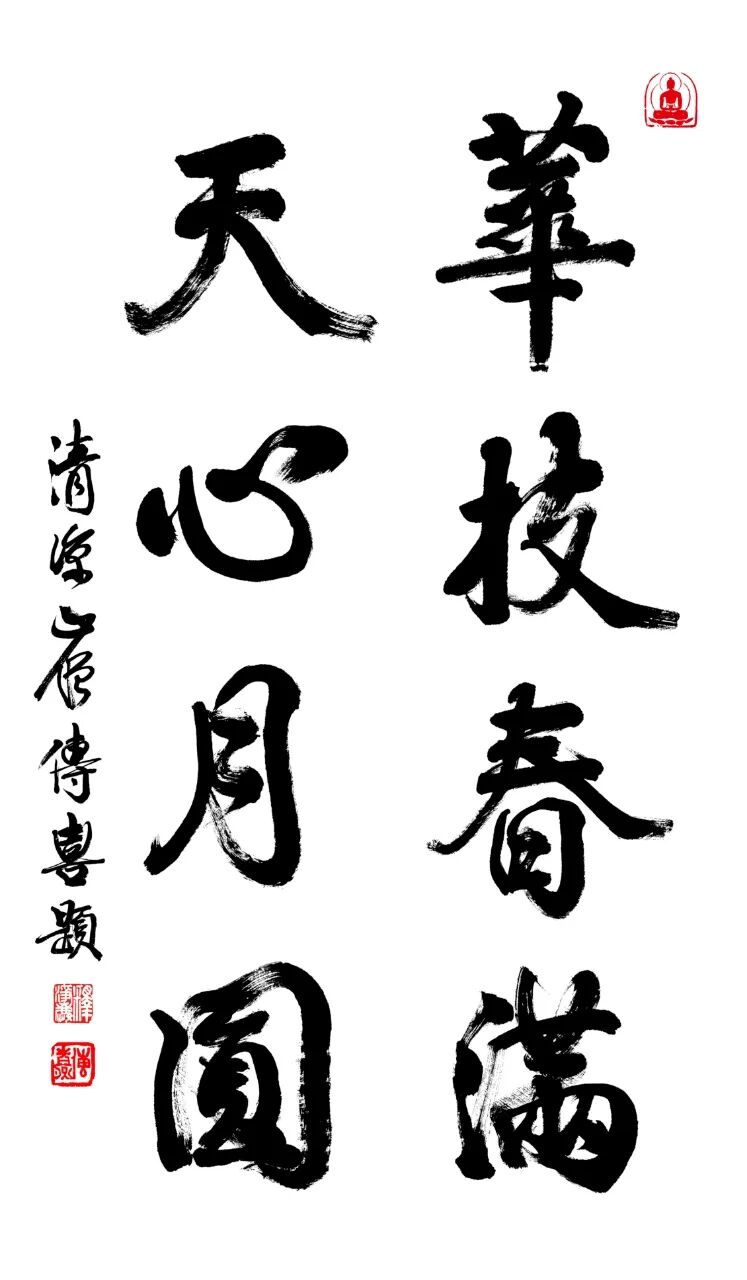 華技春滿
天心月圓
清涼山僧傳喜題